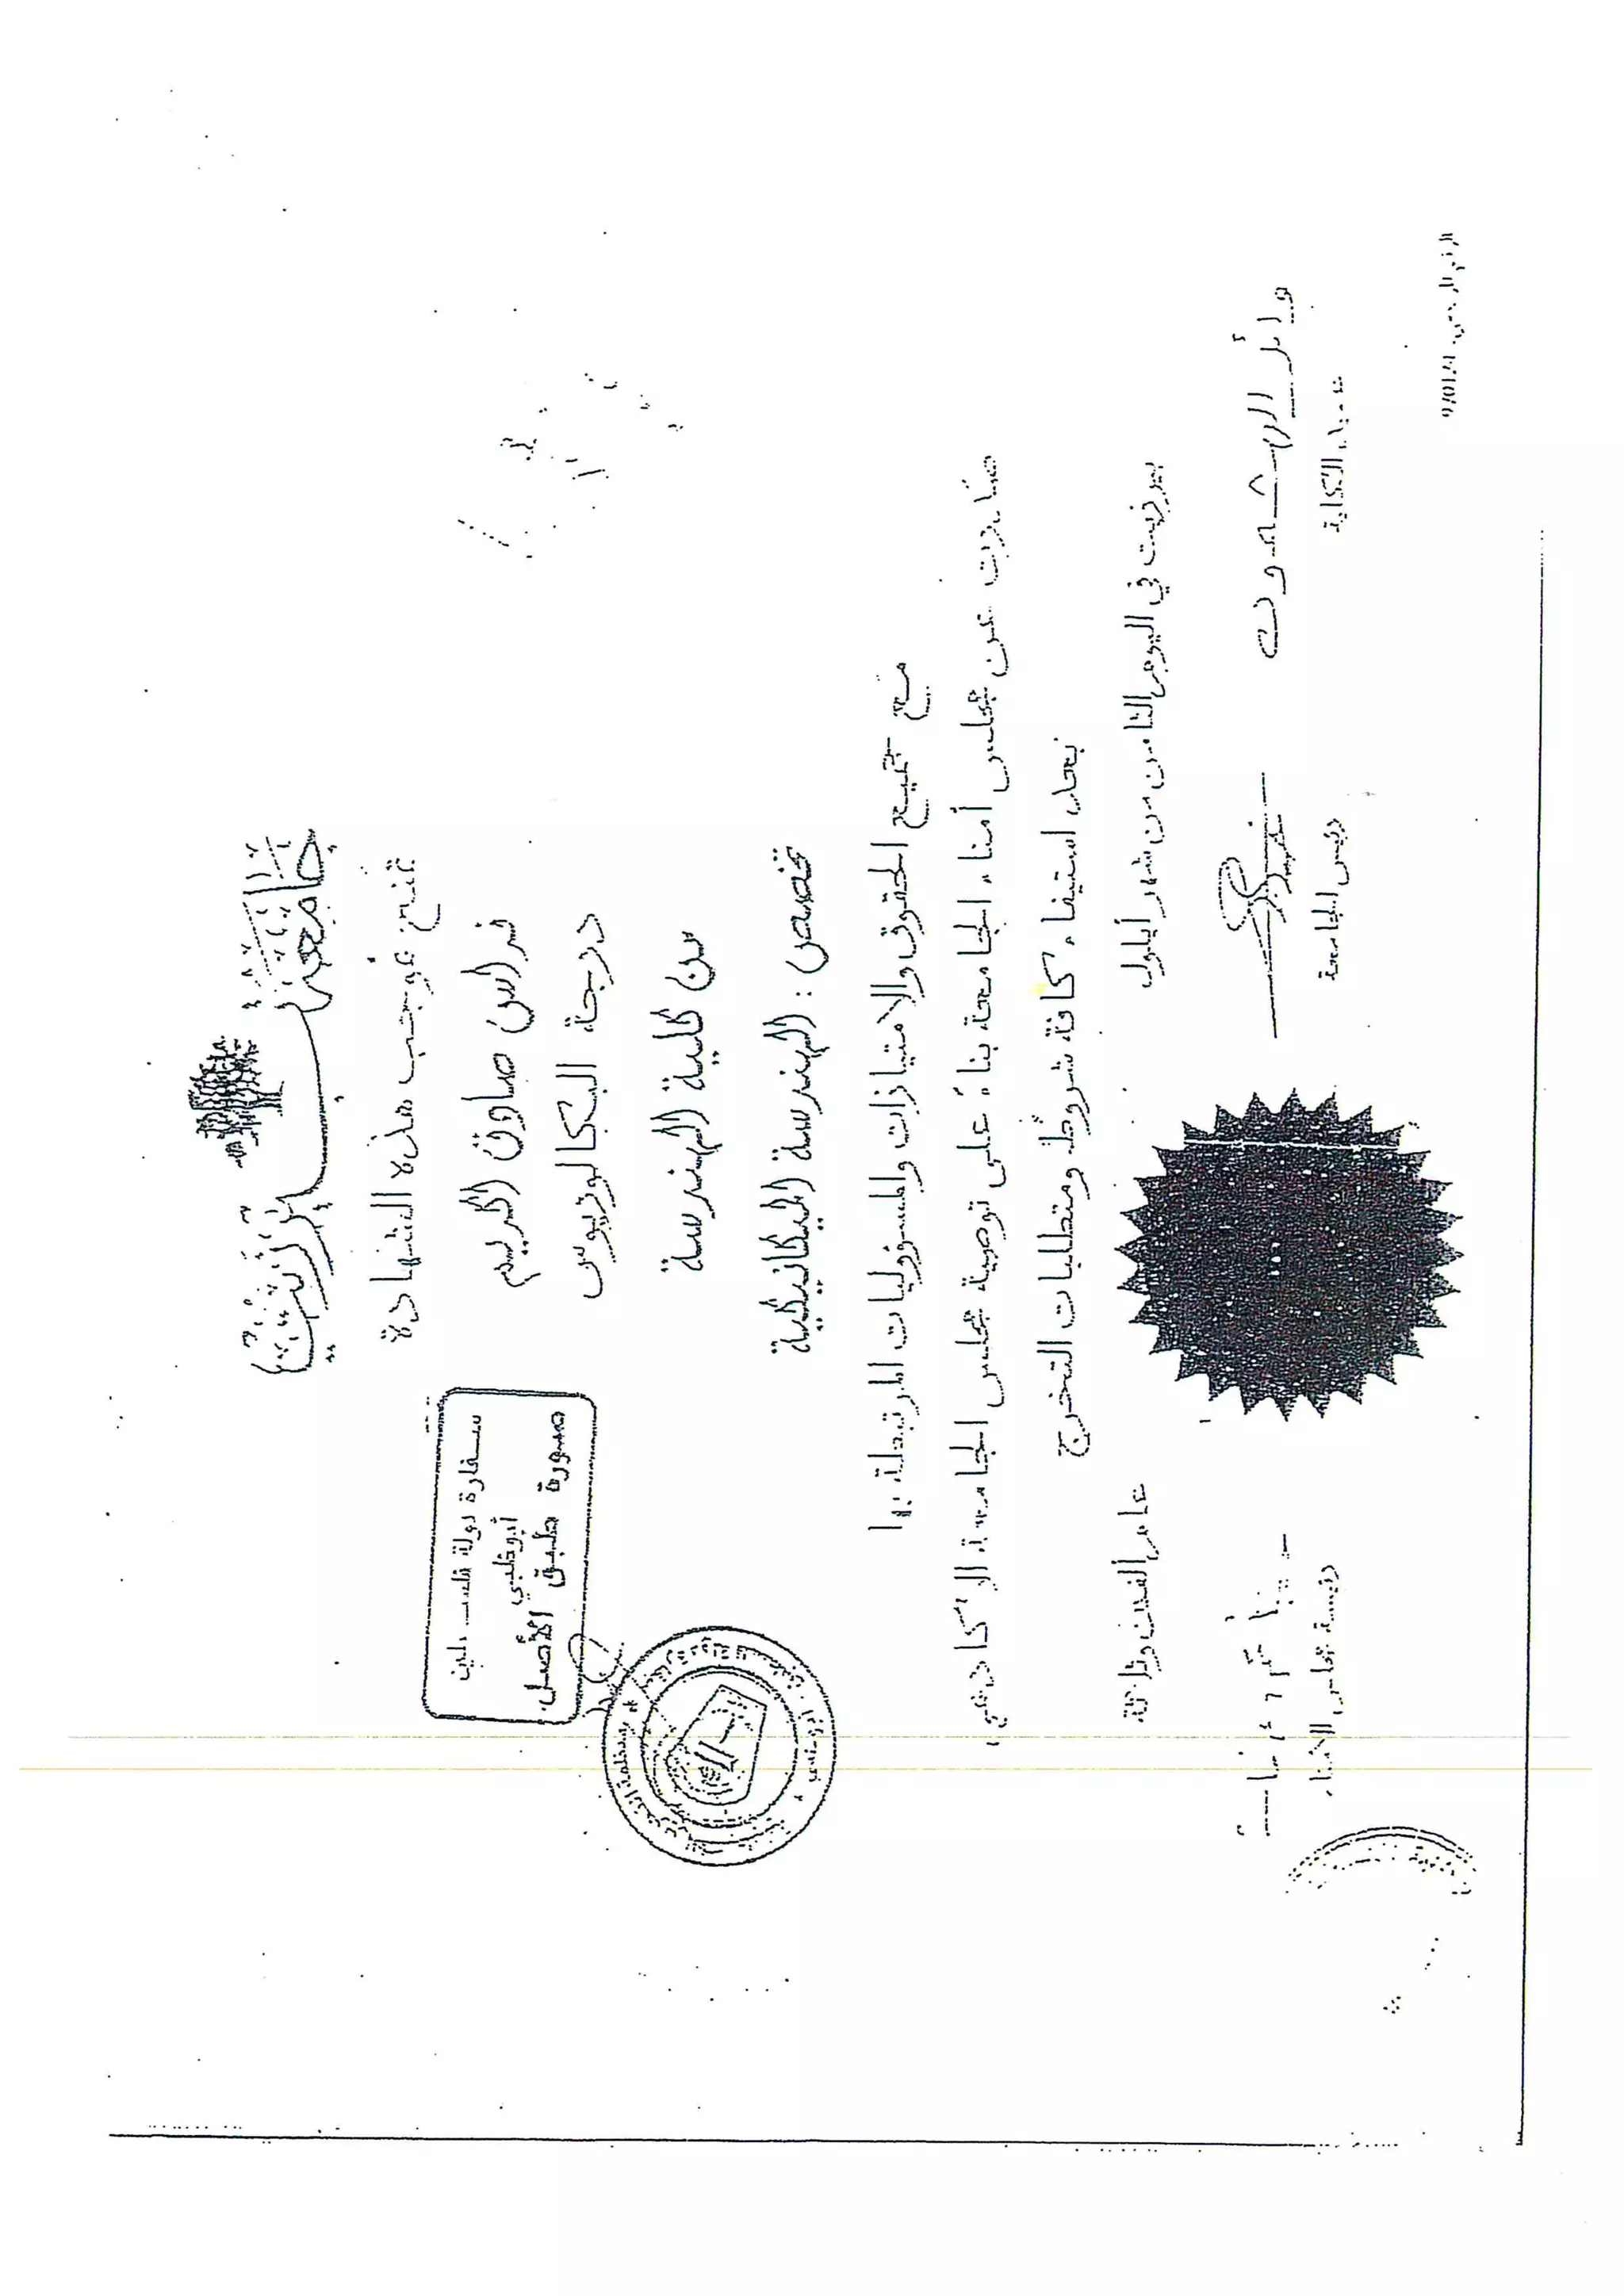 جامعة بيرزيت
تمنح بموجب هذه الشهادة
فراس صادق اكريم
درجة البكالوريوس
من كلية الهندسة
تخصص : الهندسة الميكانيكية
مع جميع الحقوق والامتيازات والمسؤوليات المرتبطة بها
صدرت عن مجلس أمناء الجامعة بناءً على توصية مجلس الجامعة الاكاديمي
بعد استيفاء كافة شروط ومتطلبات التخرج
بيرزيت في اليوم الثامن من شهر أيلول عام ألفين وثلاثة
عميد الكلية
رئيس الجامعة
رئيس مجلس الامناء
سفارة دولة فلسطين
أبوظبي
صورة طبق الأصل